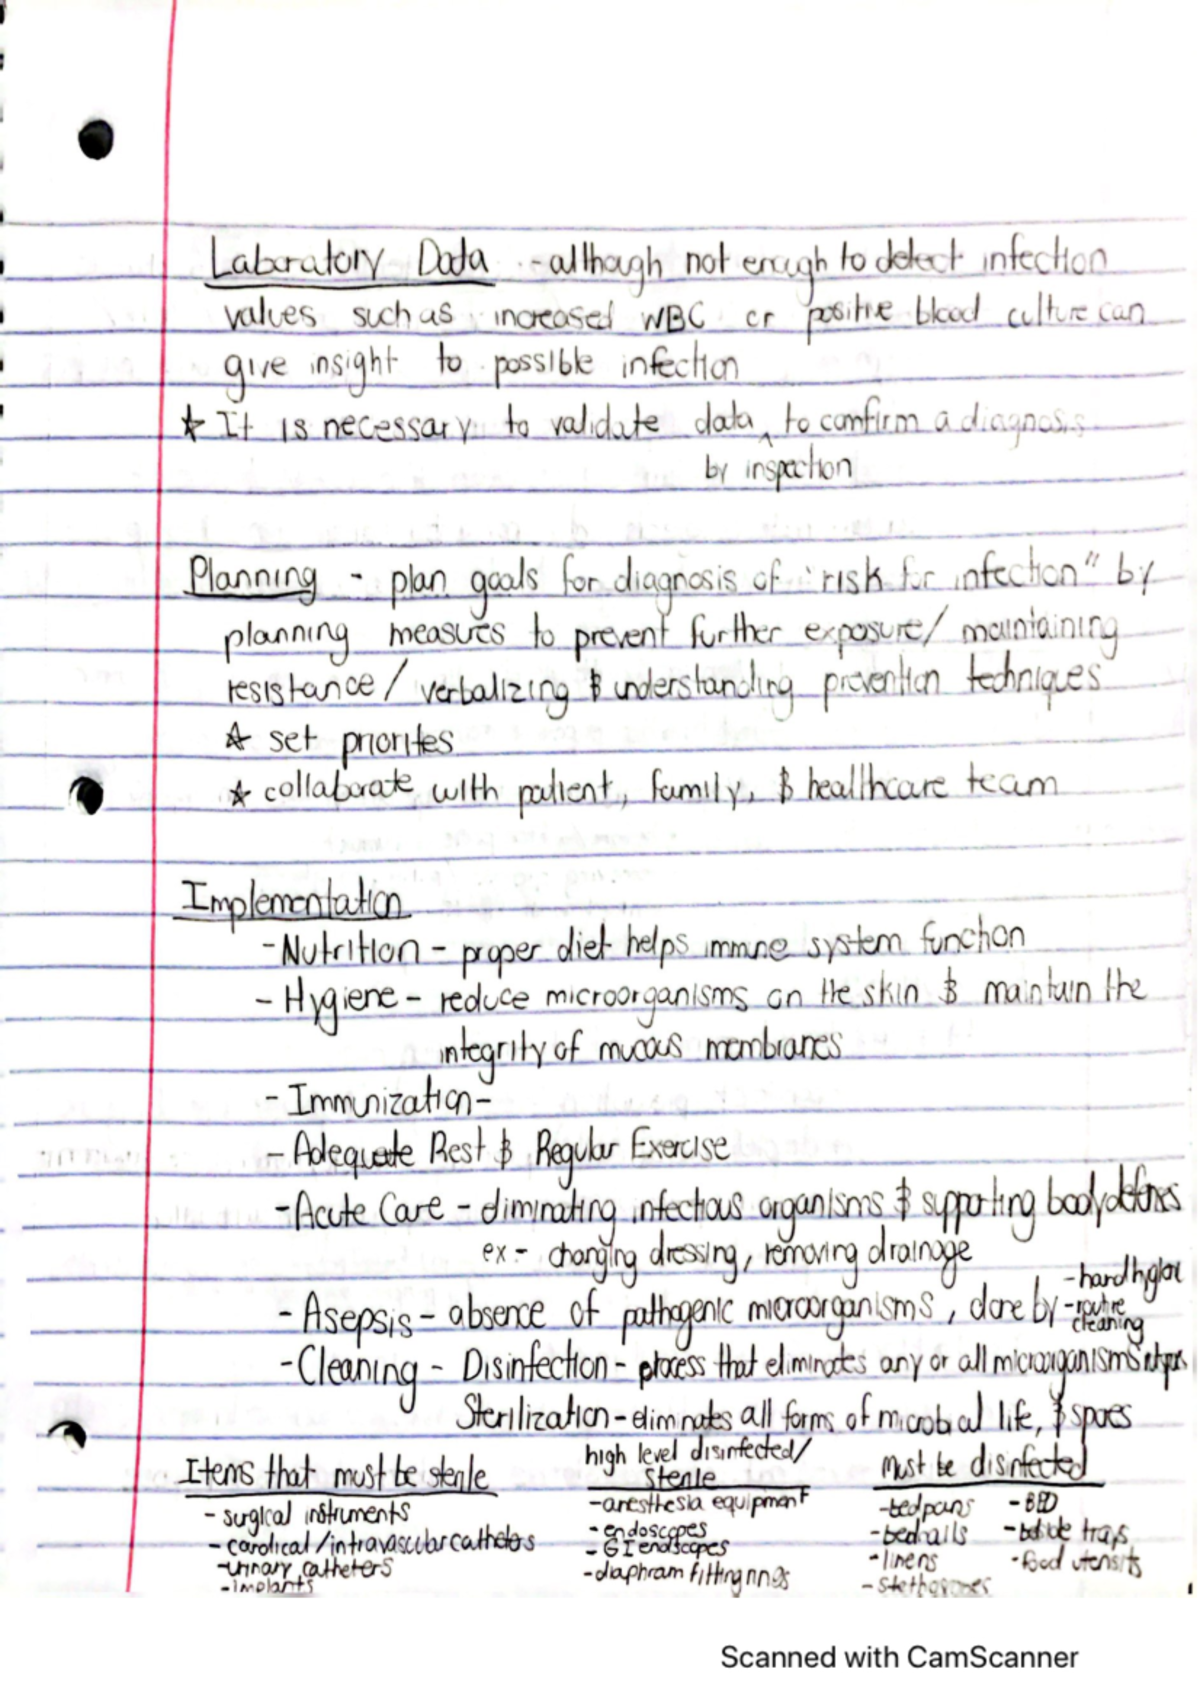 Laboratory Data - although not enough to detect infection
values such as increased WBC or positive blood culture can
give insight to possible infection
☆ It is necessary to validate data ^ to confirm a diagnosis
by inspection
Planning - plan goals for diagnosis of "risk for infection" by
planning measures to prevent further exposure/ maintaining
resistance / verbalizing & understanding prevention techniques
☆ set priorites
☆ collaborate with patient, family, & healthcare team
Implementation
- Nutrition - proper diet helps immne system function
- Hygiene - reduce microorganisms on the skin & maintain the
integrity of mucous membranes
- Immunization -
- Adequate Rest & Regular Exercise
- Acute Care - eliminating infectious organisms & supporting body defenses
ex - changing dressing, removing drainage
- Asepsis - absence of pathogenic microorganisms, done by - hard hygiene
- routine cleaning
- Cleaning - Disinfection - process that eliminates any or all microorganisms
Sterilization - eliminates all forms of microbial life, & spores
Items that must be sterile
- surgical instruments
- cardical / intravascular catheters
- urinary catheters
- implants
high level disinfected/
sterile
- anesthesia equipment
- endoscopes
- GI endoscopes
- diaphram fitting rings
Must be disinfected
- bedpans - BED
- bedrails - bedside trays
- linens - food utensils
- stethoscopes
Scanned with CamScanner